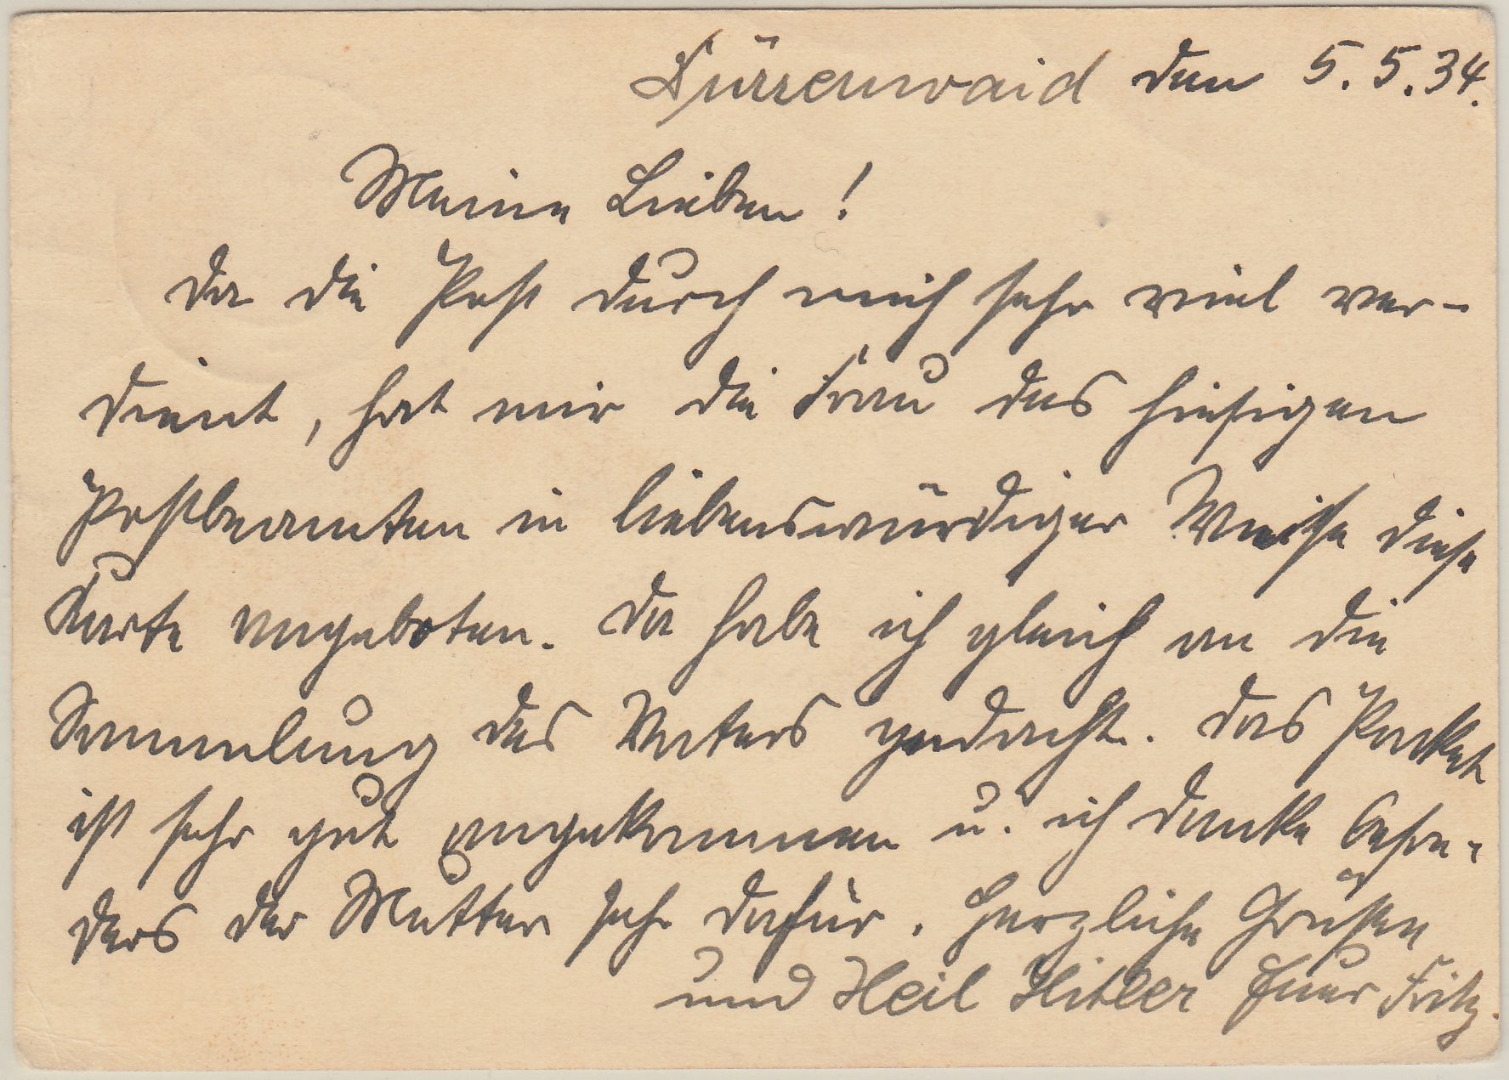 Dürrenwaid den 5.5.34.
Meine Lieben!
Da die Post durch mich sehr viel ver-
dient, hat mir die Frau des hiesigen
Postbeamten in liebenswürdiger Weise diese
Karte angeboten. Da habe ich gleich an die
Sammlung des Vaters gedacht. Das Packet
ist sehr gut angekommen u. ich danke beson-
ders der Mutter sehr dafür. Herzliche Grüße
und Heil Hitler Euer Fritz.